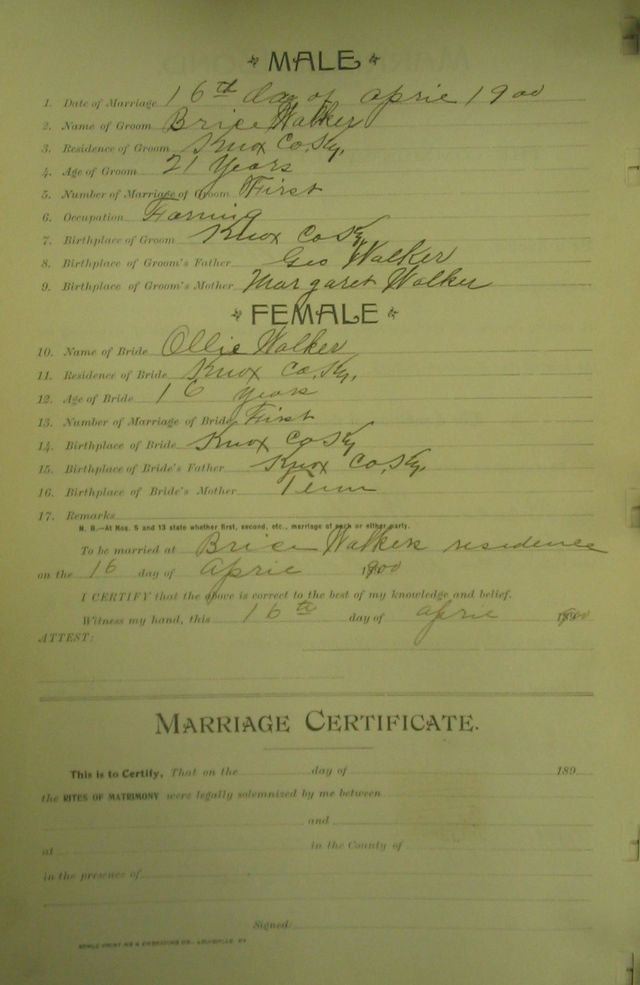 MALE
1. Date of Marriage 16th day of Aprie 1900
2. Name of Groom Brice Walker
3. Residence of Groom Knox Co. Ky.
4. Age of Groom 21 Years
5. Number of Marriage of Groom First
6. Occupation Farming
7. Birthplace of Groom Knox Co Ky
8. Birthplace of Groom's Father Geo Walker
9. Birthplace of Groom's Mother Margaret Walker
FEMALE
10. Name of Bride Ollie Walker
11. Residence of Bride Knox Co. Ky.
12. Age of Bride 16 Years
13. Number of Marriage of Bride First
14. Birthplace of Bride Knox Co Ky
15. Birthplace of Bride's Father Knox Co. Ky.
16. Birthplace of Bride's Mother Tenn
17. Remarks
N. B.—At Nos. 5 and 13 state whether first, second, etc., marriage of each or either party.
To be married at Brice Walkers residence
on the 16 day of Aprie 1900
I CERTIFY that the above is correct to the best of my knowledge and belief.
Witness my hand, this 16th day of Aprie 1900
ATTEST:
MARRIAGE CERTIFICATE.
This is to Certify, That on the day of 189
the RITES OF MATRIMONY were legally solemnized by me between
and
at in the County of
in the presence of
Signed: